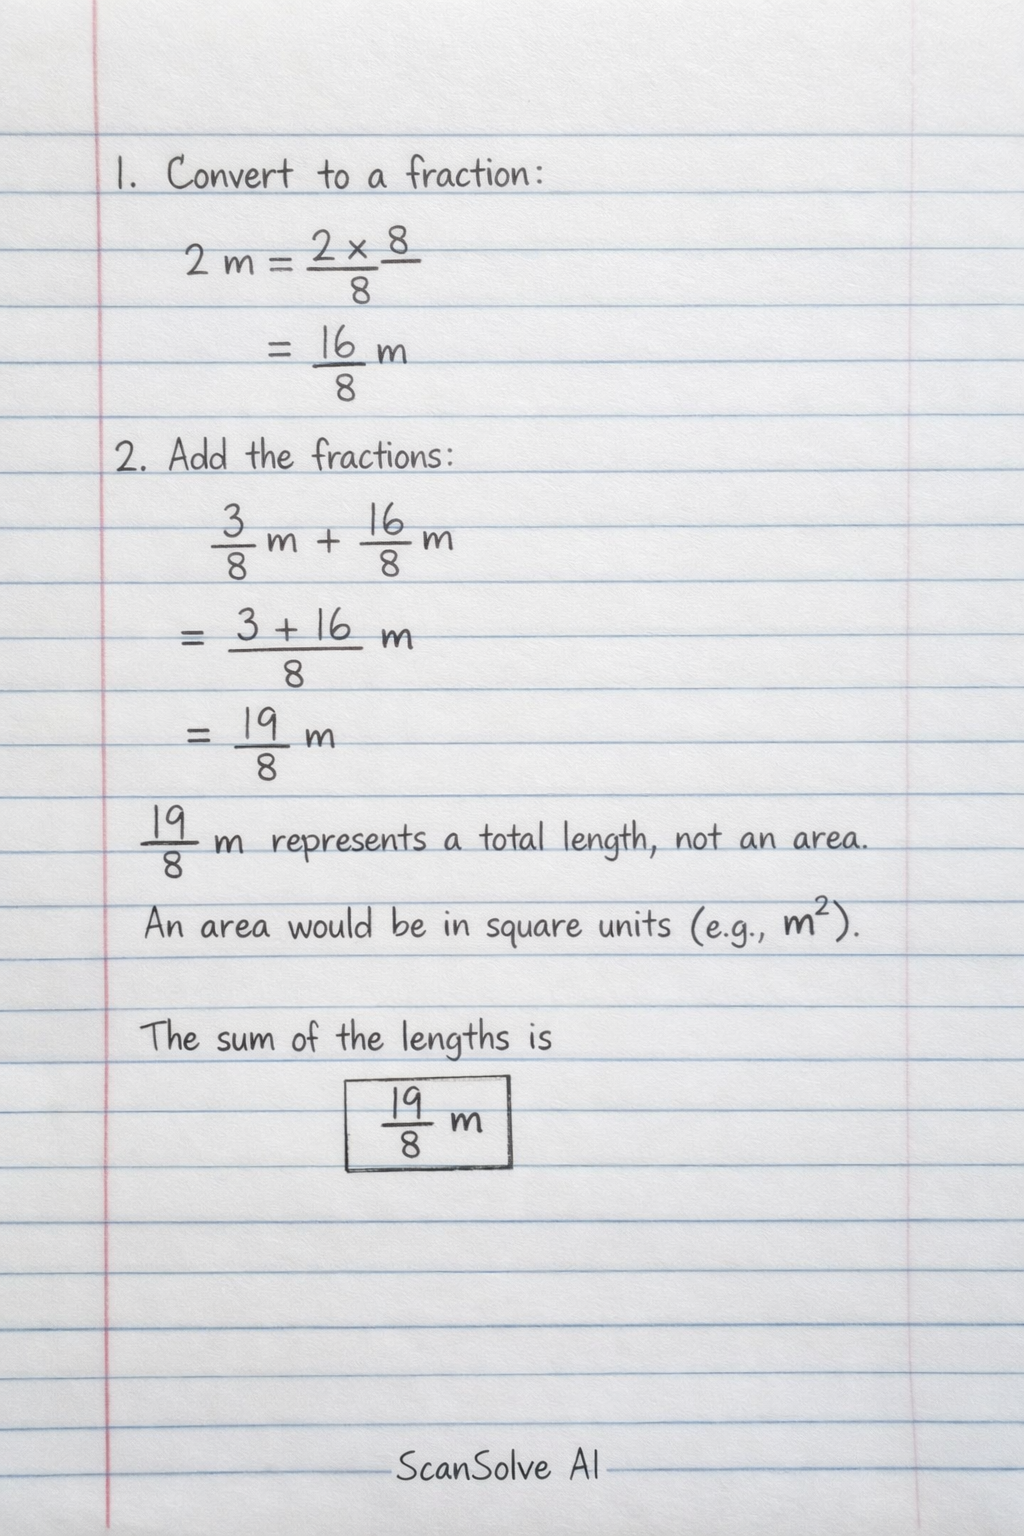 1. Convert to a fraction:
2 m = 2 × 8 / 8
= 16/8 m
2. Add the fractions:
3/8 m + 16/8 m
= 3 + 16 / 8 m
= 19/8 m
19/8 m represents a total length, not an area.
An area would be in square units (e.g., m²).
The sum of the lengths is
19/8 m
ScanSolve AI